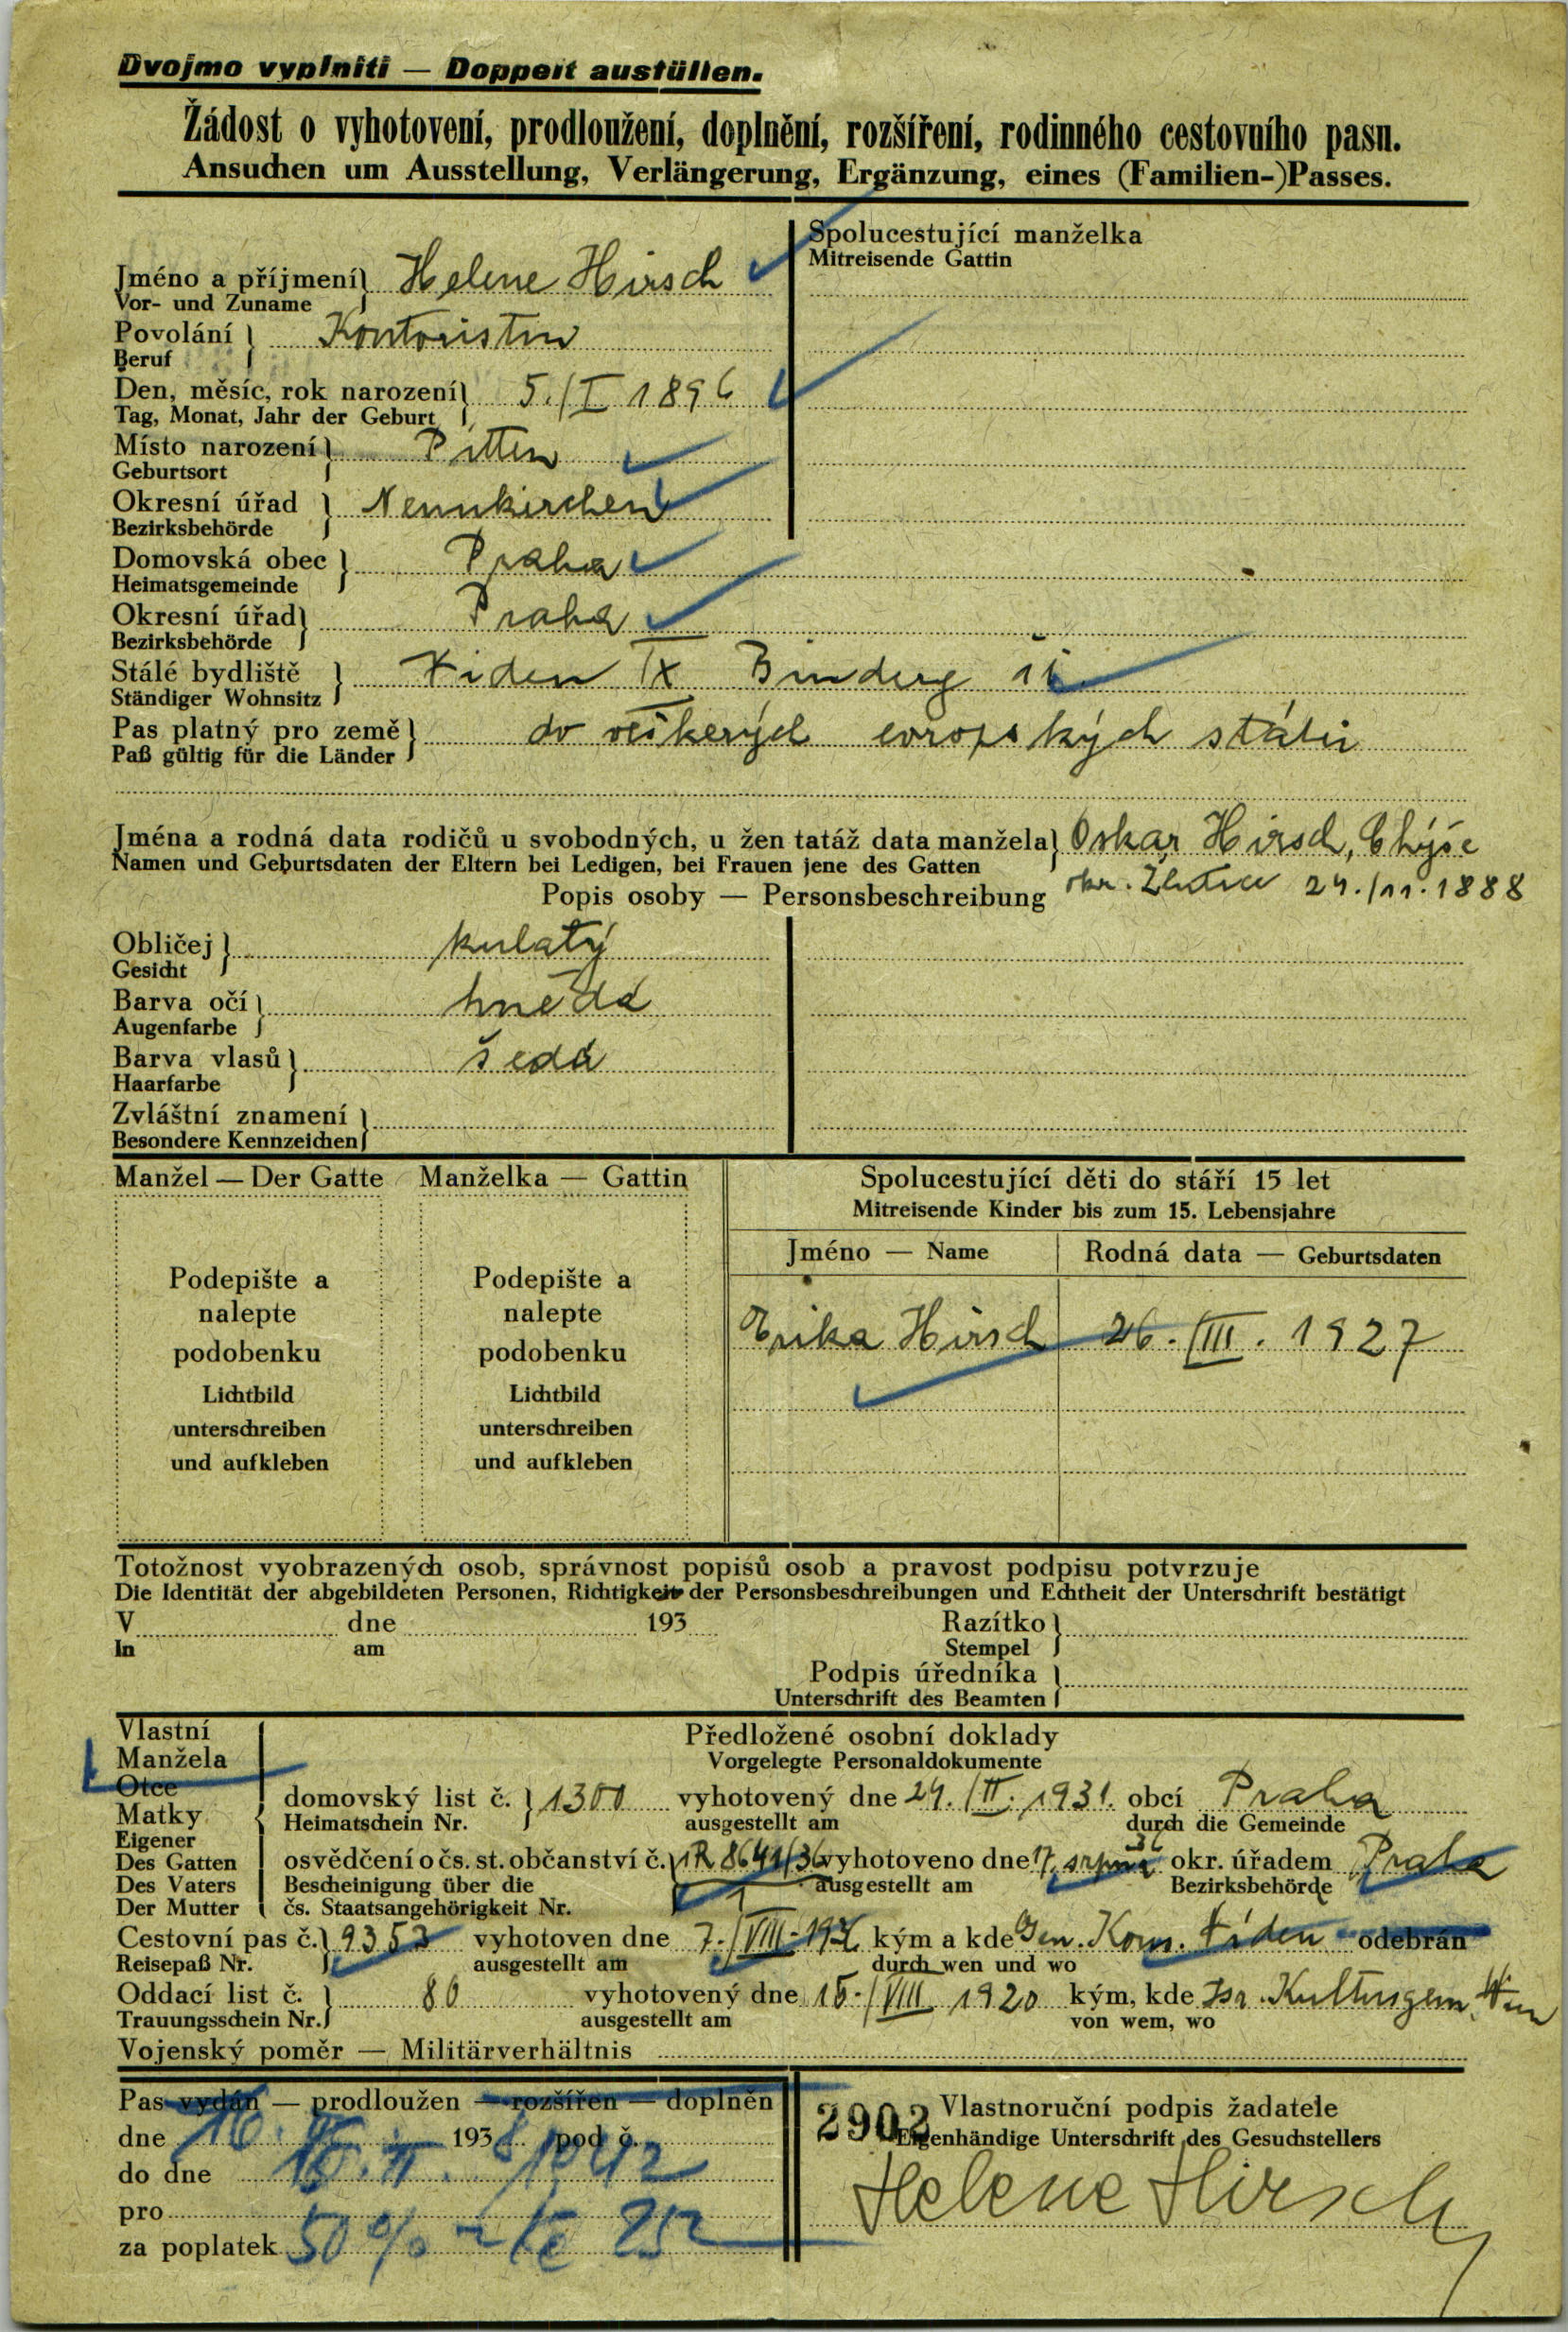 Dvojmo vyplniti — Doppelt ausfüllen.
Žádost o vyhotovení, prodloužení, doplnění, rozšíření, rodinného cestovního pasu.
Ansuchen um Ausstellung, Verlängerung, Ergänzung, eines (Familien-)Passes.
Spolucestující manželka
Mitreisende Gattin
Jméno a příjmení Helene Hirsch
Vor- und Zuname
Povolání Kontoristin
Beruf
Den, měsíc, rok narození 5./I 1896
Tag, Monat, Jahr der Geburt
Místo narození Pitten
Geburtsort
Okresní úřad Neunkirchen
Bezirksbehörde
Domovská obec Praha
Heimatsgemeinde
Okresní úřad Praha
Bezirksbehörde
Stálé bydliště Vídeň IX
Ständiger Wohnsitz
Pas platný pro země do veškerých evropských států
Paß gültig für die Länder
Jména a rodná data rodičů u svobodných, u žen tatáž data manžela Oskar Hirsch, Chýše
Namen und Geburtsdaten der Eltern bei Ledigen, bei Frauen jene des Gatten
okr. Žlutice 24./11.1888
Popis osoby — Personsbeschreibung
Obličej kulatý
Gesicht
Barva očí hnědá
Augenfarbe
Barva vlasů šedá
Haarfarbe
Zvláštní znamení
Besondere Kennzeichen
Manžel — Der Gatte Manželka — Gattin
Podepište a nalepte podobenku
Lichtbild unterschreiben und aufkleben
Podepište a nalepte podobenku
Lichtbild unterschreiben und aufkleben
Spolucestující děti do stáří 15 let
Mitreisende Kinder bis zum 15. Lebensjahre
Jméno — Name Rodná data — Geburtsdaten
Erika Hirsch 26./III. 1927
Totožnost vyobrazených osob, správnost popisů osob a pravost podpisu potvrzuje
Die Identität der abgebildeten Personen, Richtigkeit der Personsbeschreibungen und Echtheit der Unterschrift bestätigt
V dne 193
In am
Razítko
Stempel
Podpis úředníka
Unterschrift des Beamten
Vlastní
Manžela
Otce
Matky
Eigener
Des Gatten
Des Vaters
Der Mutter
Předložené osobní doklady
Vorgelegte Personaldokumente
domovský list č. 1300 vyhotovený dne 24./II. 1931. obcí Praha
Heimatschein Nr. ausgestellt am durch die Gemeinde
osvědčení o čs. st. občanství č. 1R 8641/36 vyhotoveno dne 17. srpna 36 okr. úřadem Praha
Bescheinigung über die ausgestellt am Bezirksbehörde
čs. Staatsangehörigkeit Nr.
Cestovní pas č. 9353 vyhotoven dne 7./VIII. kým a kde Gen. Kons. Vídeň odebrán
Reisepaß Nr. ausgestellt am durch wen und wo
Oddací list č. 80 vyhotovený dne 15./VIII 1920 kým, kde Isr. Kultusgem. Wien
Trauungsschein Nr. ausgestellt am von wem, wo
Vojenský poměr — Militärverhältnis
Pas vydán — prodloužen — rozšířen — doplněn
dne 16. 193 pod č.
do dne
pro
za poplatek 50%
2902
Vlastnoruční podpis žadatele
Eigenhändige Unterschrift des Gesuchstellers
Helene Hirsch